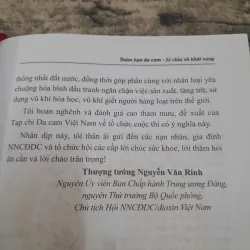 Thảm họa da cam - Sẻ chia và khát vọng
thống nhất đất nước, đồng thời góp phần cùng với nhân loại yêu
chuộng hòa bình đấu tranh ngăn chặn việc sản xuất, tàng trữ, sử
dụng vũ khí hóa học, vũ khí giết người hàng loạt trên thế giới.
Tôi hoan nghênh và đánh giá cao tham mưu, đề xuất của
Tạp chí Da cam Việt Nam về tổ chức cuộc thi có ý nghĩa này.
Nhân dịp này, tôi thân ái gửi đến các nạn nhân, gia đình
NNCĐDC và tổ chức hội các cấp lời chúc sức khỏe, lời thăm hỏi
ân cần và lời chào trân trọng!
Thượng tướng Nguyễn Văn Rinh
Nguyên Ủy viên Ban Chấp hành Trung ương Đảng,
nguyên Thứ trưởng Bộ Quốc phòng,
Chủ tịch Hội NNCĐDC/dioxin Việt Nam